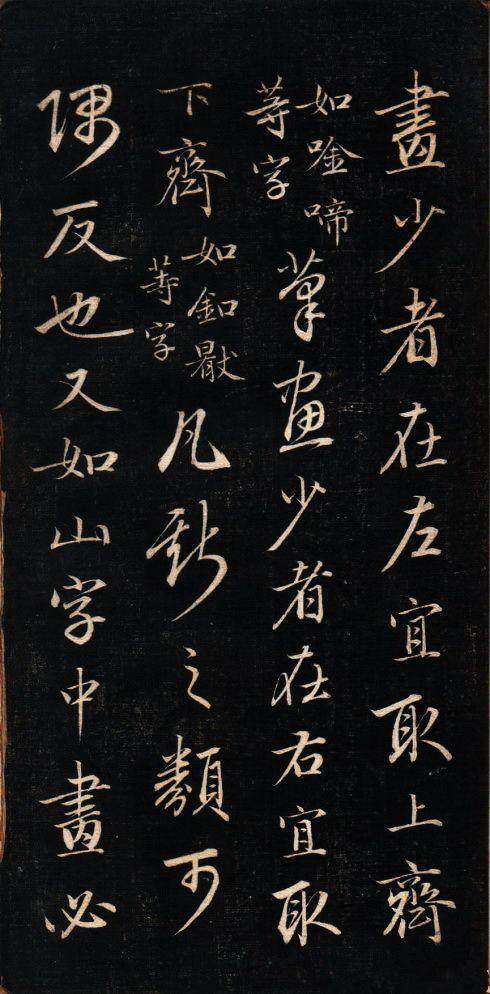 畫少者在左宜取上齊
如唫啼
等字
筆畫少者在右宜取
下齊
如釦
等字
凡斯之類可
隅反也又如山字中畫必